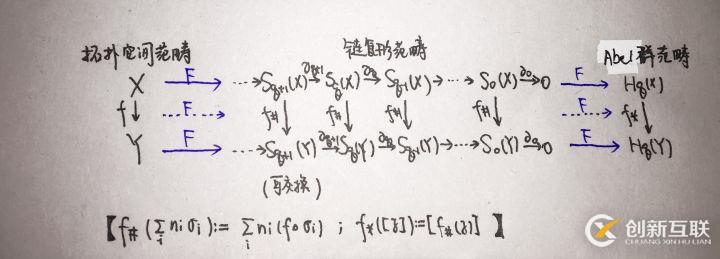 拓扑空间范畴 链复形范畴 Abel群范畴
X F ⋯→S_{q+1}(X) ∂_{q+1}→ S_q(X) ∂_q→ S_{q-1}(X)→⋯→S_0(X) ∂_0→ 0 F H_q(X)
f↓ F f_# f_# f_# f_# F f_*
Y F ⋯→S_{q+1}(Y) ∂_{q+1}→ S_q(Y) ∂_q→ S_{q-1}(Y)→⋯→S_0(Y) ∂_0→ 0 F H_q(Y)
(可交换)
【f_#(∑_i n_iσ_i):= ∑_i n_i(f∘σ_i) ; f_*([z]):=[f_#(z)] 】
创新互联
CHUANG XIN HU LIAN